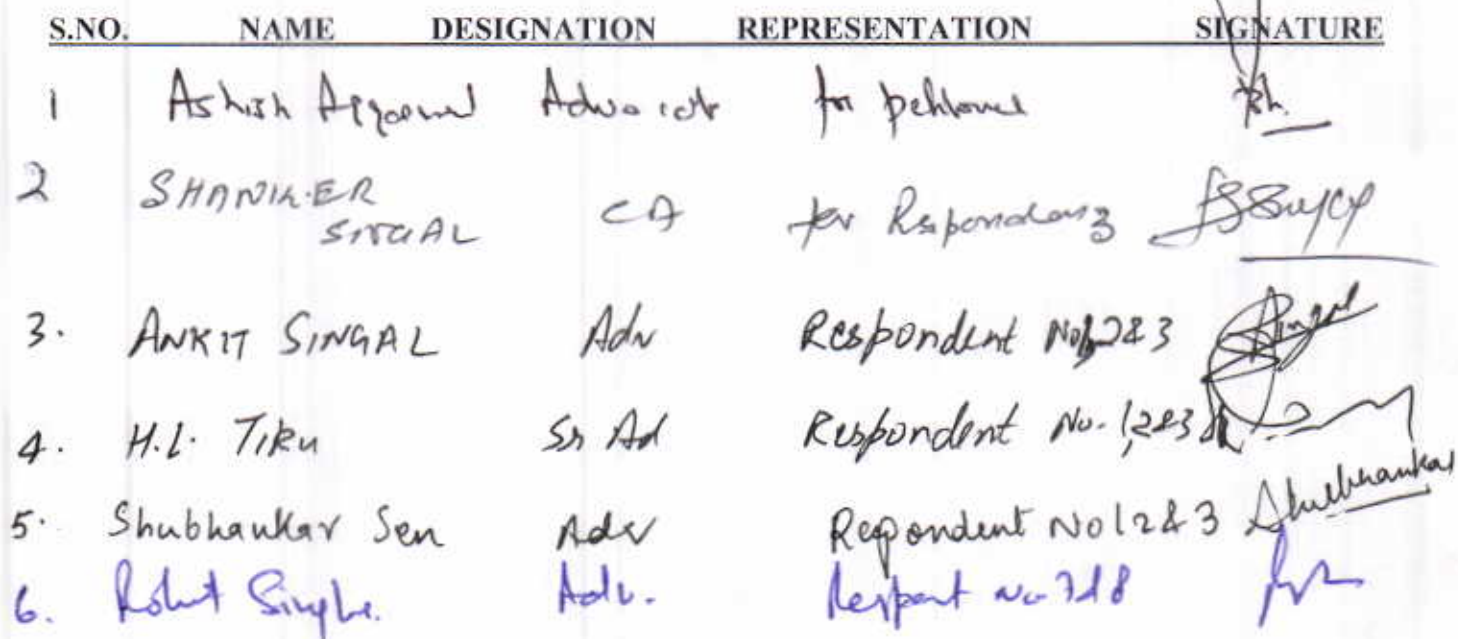 S.NO. NAME DESIGNATION REPRESENTATION SIGNATURE
1 Ashish Aggarwal Advocate for petitioner
2 SHANKER SINGAL CA for Respondent 3
3. ANKIT SINGAL Adv Respondent No 1,2&3 Singal
4. H.L. TIKU Sr Ad Respondent No. 1,2&3
5. Shubhankar Sen Adv Repondent No 1 2 & 3 Shubhankar
6. Rohit Singh. Adv. Respent No 7&8